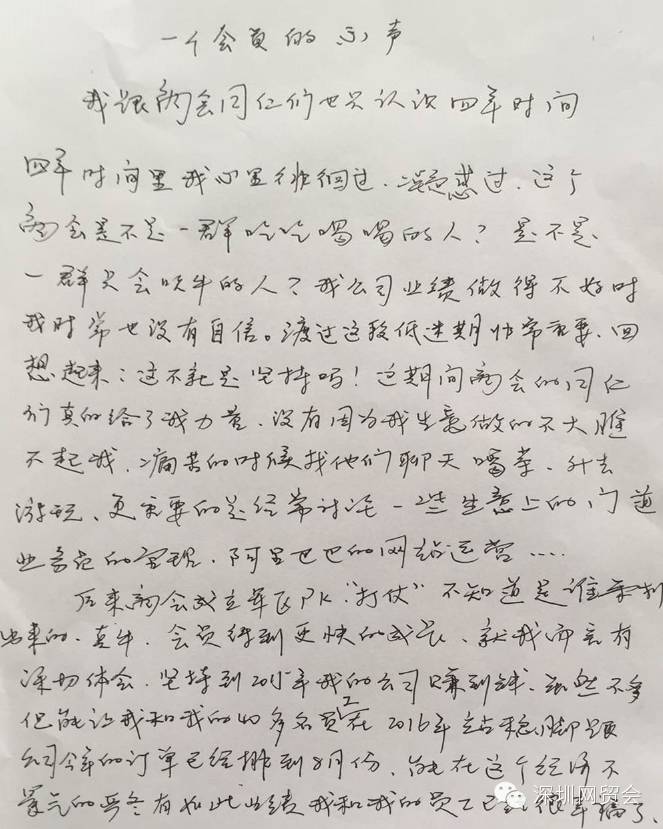 一个会员的心声
我跟商会同仁们也只认识四年时间
四年时间里我心里徘徊过、凝惑过、这个
商会是不是一群吃吃喝喝的人？是不是
一群只会吹牛的人？我公司业绩做得不好时
我时常也没有自信。渡过这段低迷期非常重要、回
想起来：这不就是坚持吗！这期间商会的同仁
们真的给了我力量、没有因为我生意做的不大瞧
不起我、痛苦的时候找他们聊天喝茶、外去
游玩、更重要的是经常讨论一些生意上的门道
业务员的管理、阿里巴巴的网站运营.....
后来商会成立军区PK“打仗”不知道是谁策划
出来的、真牛、会员得到更快的成长、就我而言有
深切体会、坚持到2015年我的公司赚到钱、虽然不多
但能让我和我的40多名员工在2016年站稳脚跟
公司今年的订单已经排到8月份、能在这个经济不
景气的严冬有如此业绩我和我的员工已经很幸福了、
深圳网贸会